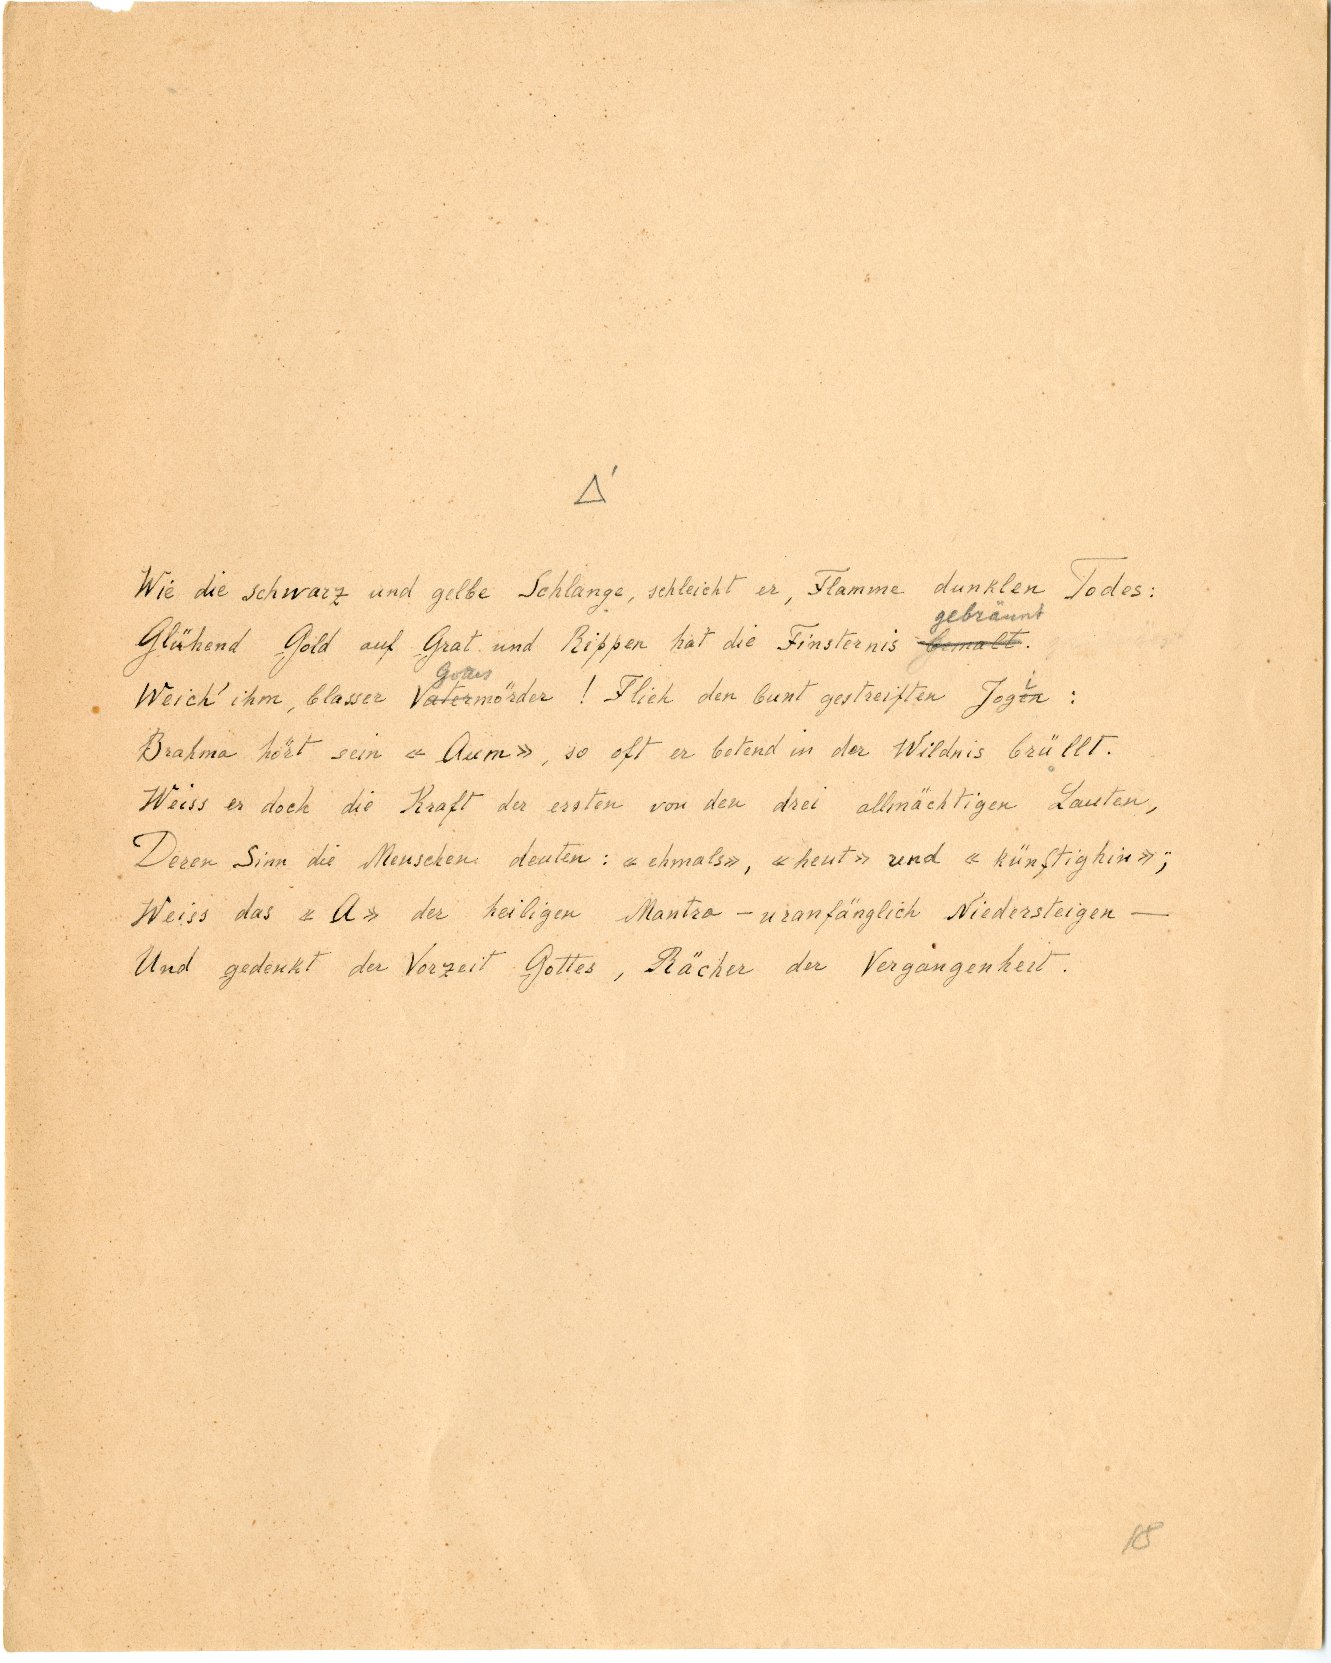 Δ'
Wie die schwarz und gelbe Schlange, schleicht er, Flamme dunklen Todes:
gebräunt
Glühend Gold auf Grat und Rippen hat die Finsternis bemalt.
Gottes
Weich' ihm, blasser Vatermörder! Flieh den bunt gestreiften Jogin:
Brahma hört sein « Aum», so oft er betend in der Wildnis brüllt.
Weiss er doch die Kraft der ersten von den drei allmächtigen Lauten,
Deren Sinn die Menschen deuten: «ehmals», «heut» und « künftighin»;
Weiss das « A» der heiligen Mantra – uranfänglich Niedersteigen —
Und gedenkt der Vorzeit Gottes, Rächer der Vergangenheit.